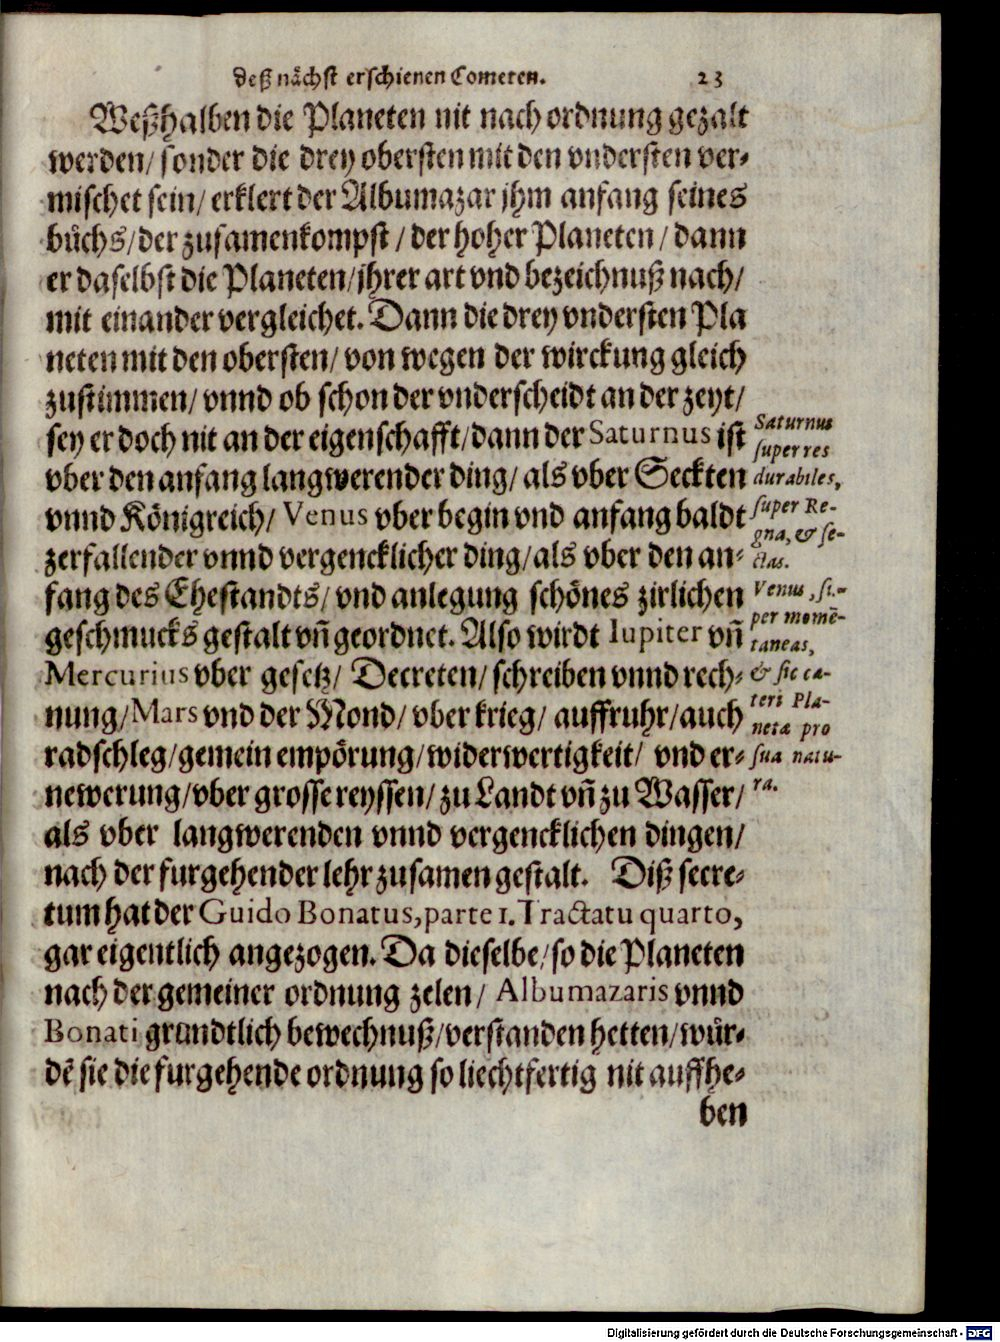 deß nåchst erschienen Cometen. 23
Weßhalben die Planeten nit nach ordnung gezalt
werden/ sonder die drey obersten mit den vndersten ver-
mischet sein/ erklert der Albumazar jhm anfang seines
bůchs/ der zusamenkompst / der hoher Planeten / dann
er daselbst die Planeten/ jhrer art vnd bezeichnuß nach/
mit einander vergleichet. Dann die drey vndersten Pla
neten mit den obersten/ von wegen der wirckung gleich
zustimmen/ vnnd ob schon der vnderscheidt an der zeyt/
sey er doch nit an der eigenschafft/ dann der Saturnus ist
vber den anfang langwerender ding/ als vber Seckten
vnnd Königreich/ Venus vber begin vnd anfang baldt
zerfallender vnnd vergencklicher ding/ als vber den an-
fang des Ehestandts/ vnd anlegung schönes zirlichen
geschmucks gestalt vñ geordnet. Also wirdt Iupiter vñ
Mercurius vber gesetz/ Decreten/ schreiben vnnd rech-
nung/ Mars vnd der Mond/ vber krieg/ auffruhr/ auch
radschleg/ gemein empörung/ widerwertigkeit/ vnd er-
newerung/ vber grosse reyssen/ zu Landt vñ zu Wasser/
als vber langwerenden vnnd vergencklichen dingen/
nach der furgehender lehr zusamen gestalt. Diß secre-
tum hat der Guido Bonatus, parte 1. Tractatu quarto,
gar eigentlich angezogen. Da dieselbe/ so die Planeten
nach der gemeiner ordnung zelen/ Albumazaris vnnd
Bonati grundtlich bewechnuß/ verstanden hetten/ wůr-
dē sie die furgehende ordnung so liechtfertig nit auffhe-
ben
Saturnus
super res
durabiles,
super Re-
gna, & se-
ctas.
Venus, su-
per momē-
taneas,
& sic cæ-
teri Pla-
netæ pro
sua natu-
ra.
Digitalisierung gefördert durch die Deutsche Forschungsgemeinschaft - DFG